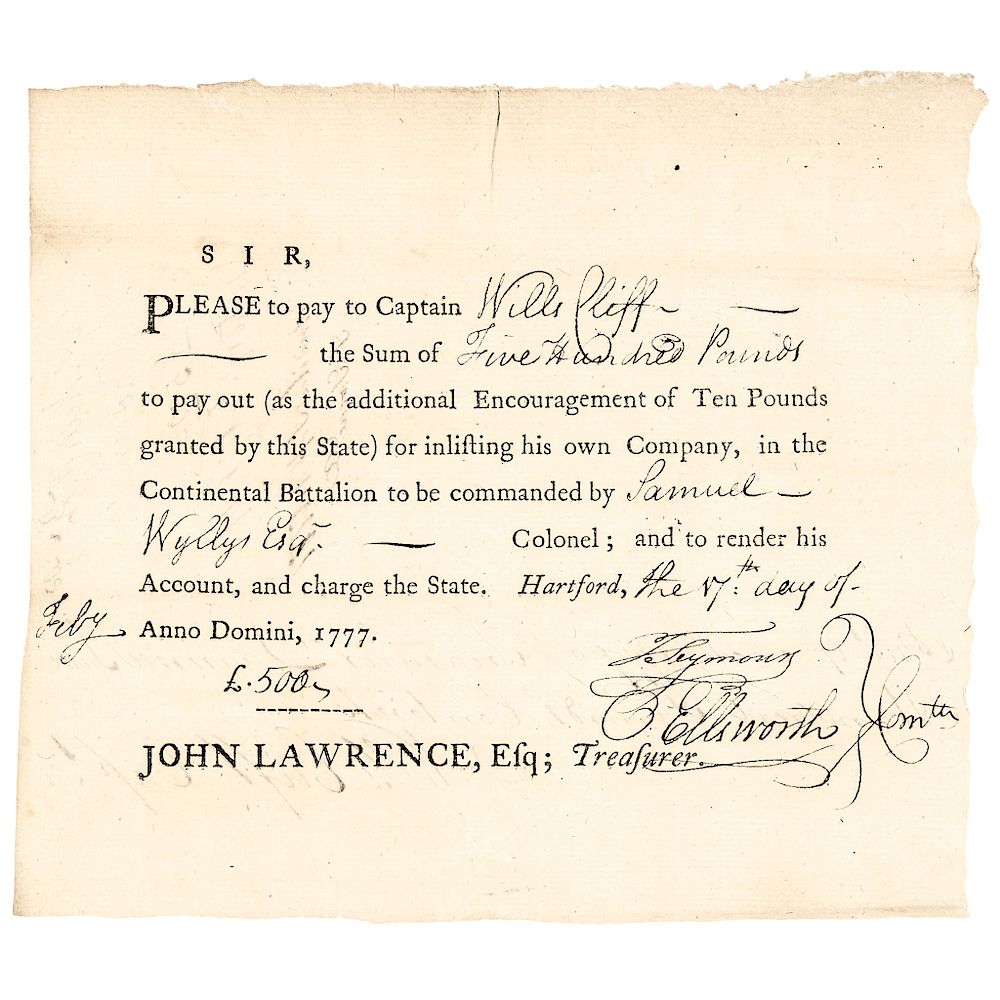 SIR,
PLEASE to pay to Captain Wills Cliff
the Sum of Five Hundred Pounds
to pay out (as the additional Encouragement of Ten Pounds
granted by this State) for inliſting his own Company, in the
Continental Battalion to be commanded by Samuel
Wyllys Esqr. Colonel; and to render his
Account, and charge the State. Hartford, the 17th day of
Feby Anno Domini, 1777.
£.500
T Seymour
O Ellsworth Comtte
JOHN LAWRENCE, Eſq; Treaſurer.